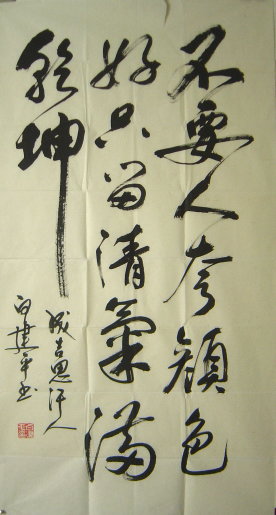 不要人夸颜色
好只留清氣满
乾坤
成吉思汗人
白建平书